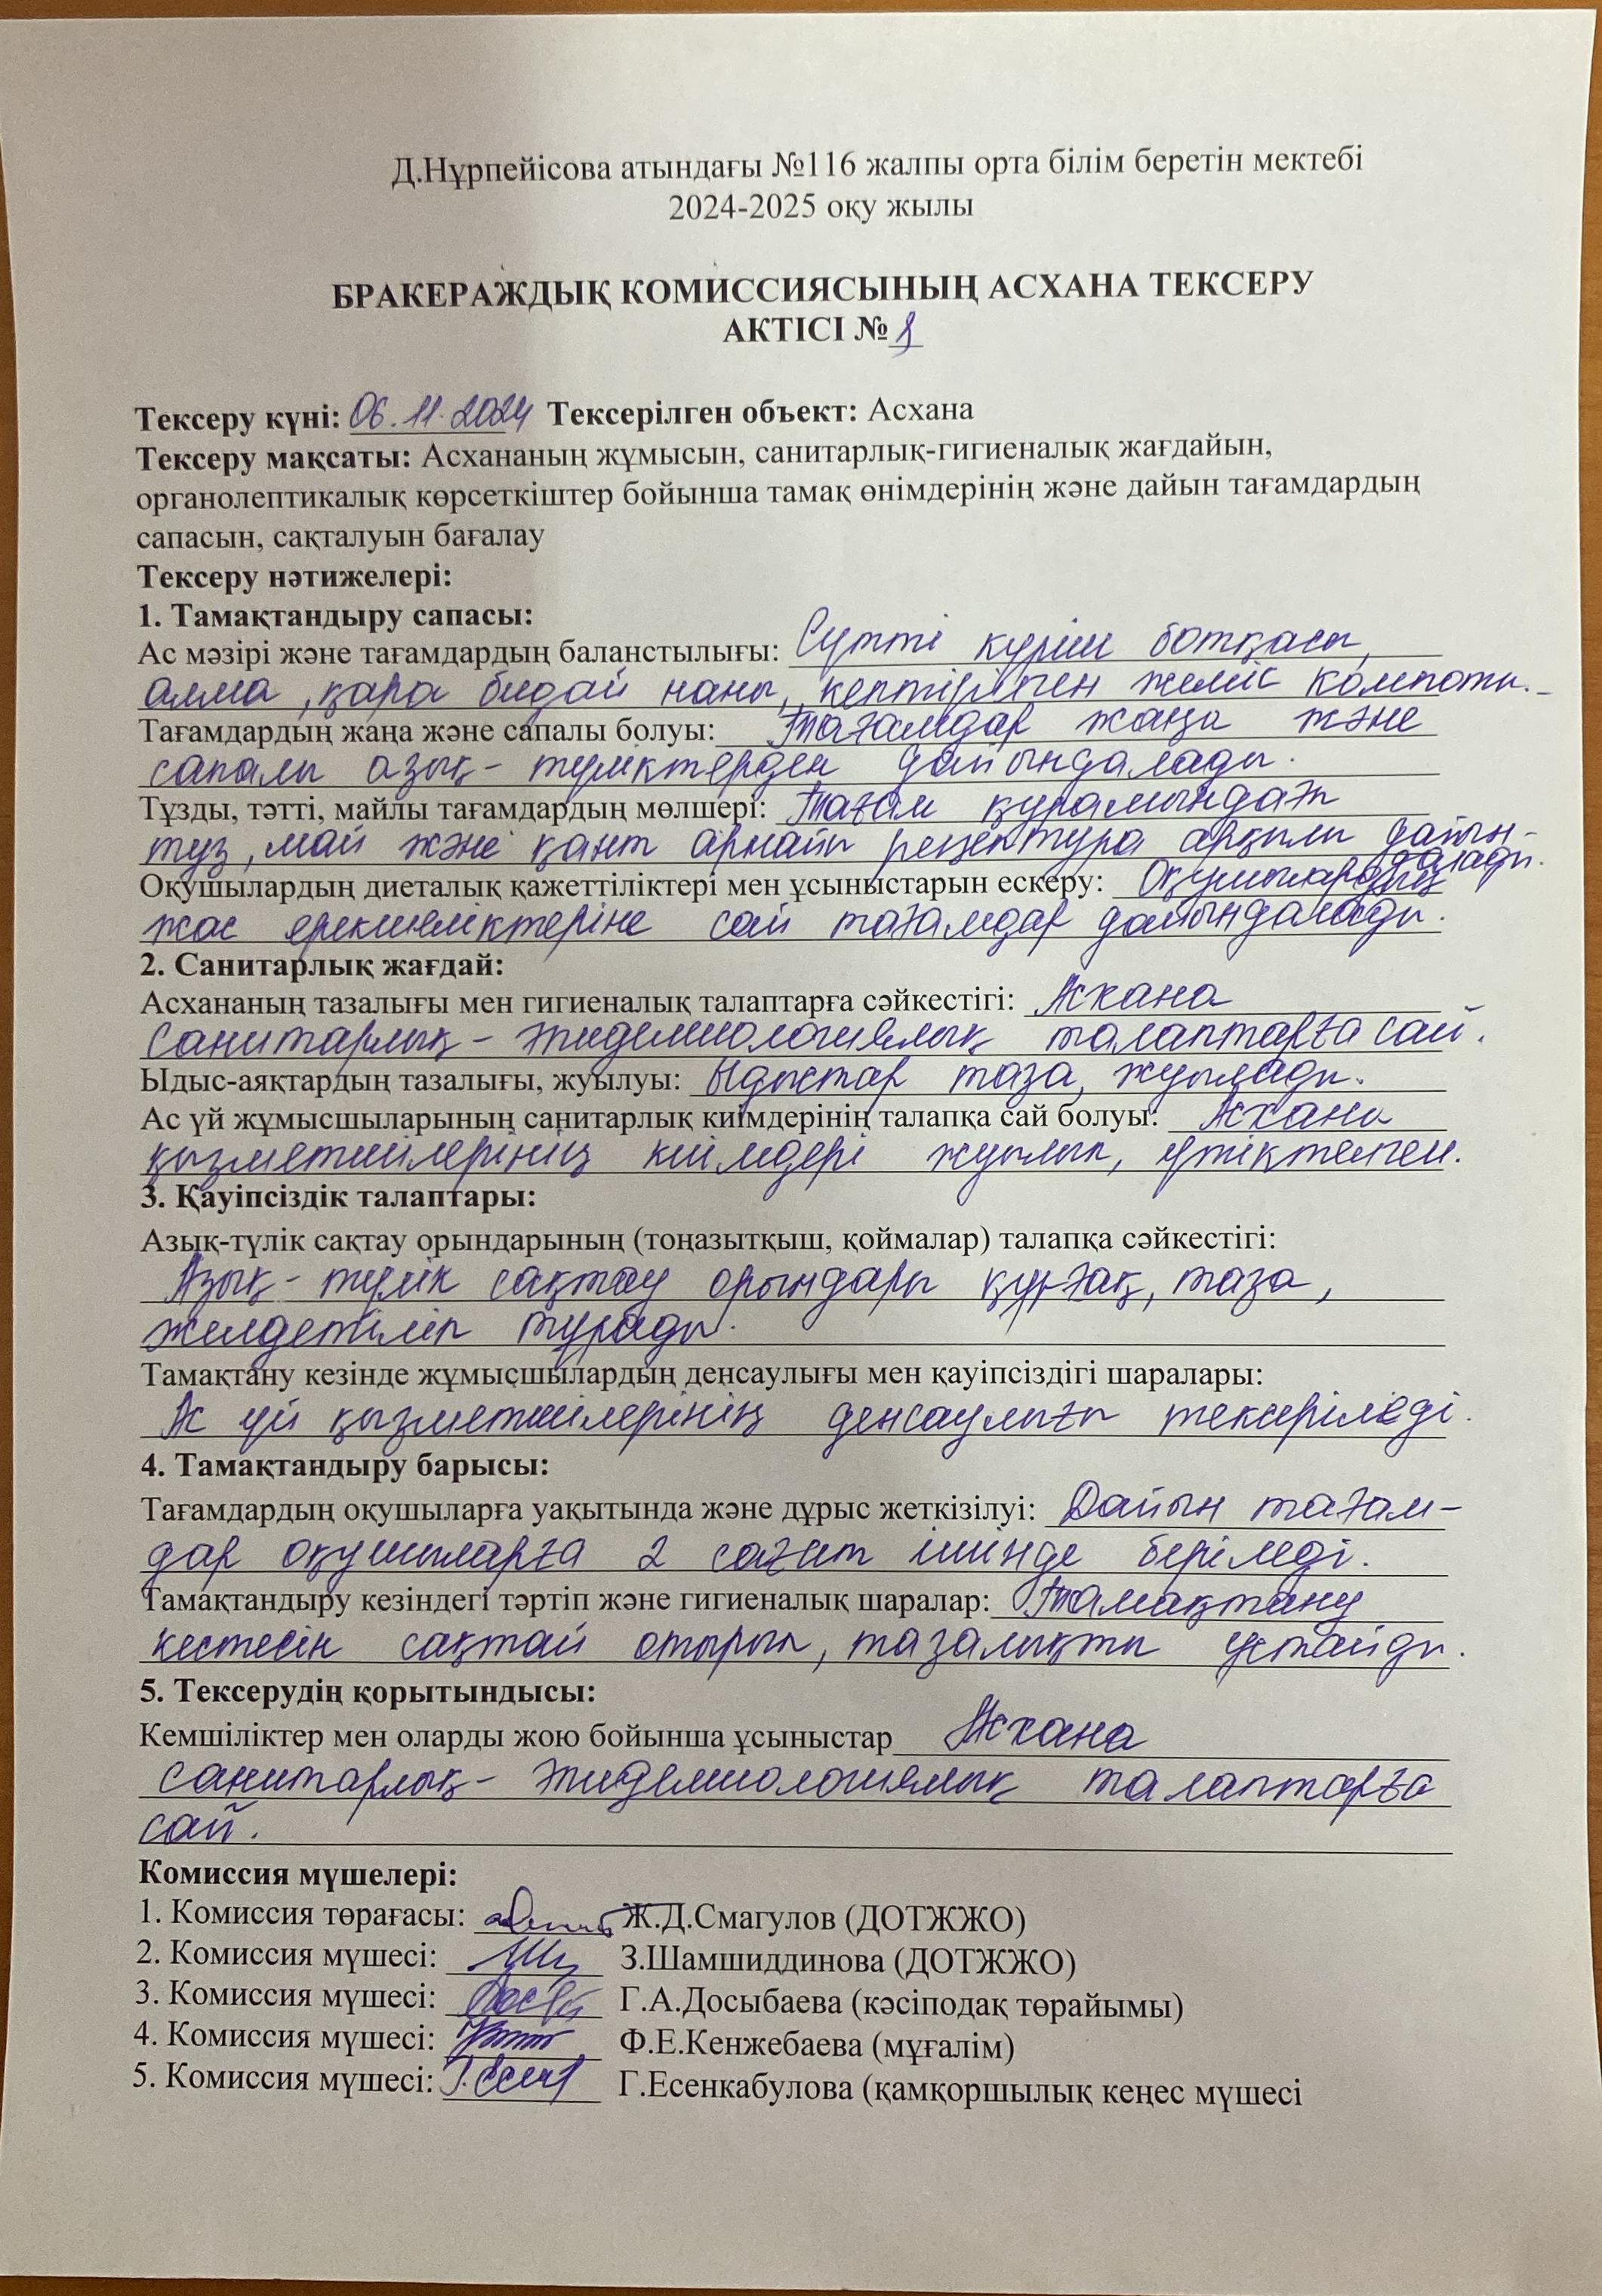 Д.Нұрпейісова атындағы №116 жалпы орта білім беретін мектебі
2024-2025 оқу жылы
БРАКЕРАЖДЫҚ КОМИССИЯСЫНЫҢ АСХАНА ТЕКСЕРУ
АКТІСІ №
Тексеру күні: 06.11.2024 Тексерілген объект: Асхана
Тексеру мақсаты: Асхананың жұмысын, санитарлық-гигиеналық жағдайын,
органолептикалық көрсеткіштер бойынша тамақ өнімдерінің және дайын тағамдардың
сапасын, сақталуын бағалау
Тексеру нәтижелері:
1. Тамақтандыру сапасы:
Ас мәзірі және тағамдардың баланстылығы: Сүтті күріш ботқасы,
алма, қара бидай наны, кептірілген жеміс компоты.
Тағамдардың жаңа және сапалы болуы: Тағамдар жаңа және
сапалы азық-түліктерден дайындалады.
Тұзды, тәтті, майлы тағамдардың мөлшері: Тағам құрамындағы
тұз, май және қант арнайы рецептура арқылы дайын-
далады.
Оқушылардың диеталық қажеттіліктері мен ұсыныстарын ескеру: Оқушылардың
жас ерекшеліктеріне сай тағамдар дайындалады.
2. Санитарлық жағдай:
Асхананың тазалығы мен гигиеналық талаптарға сәйкестігі: Асхана
санитарлық-эпидемиологиялық талаптарға сай.
Ыдыс-аяқтардың тазалығы, жуылуы: Ыдыстар таза, жуылады.
Ас үй жұмысшыларының санитарлық киімдерінің талапқа сай болуы: Асхана
қызметшілерінің киімдері жуылып, үтіктелген.
3. Қауіпсіздік талаптары:
Азық-түлік сақтау орындарының (тоңазытқыш, қоймалар) талапқа сәйкестігі:
Азық-түлік сақтау орындары құрғақ, таза,
желдетіліп тұрады.
Тамақтану кезінде жұмысшылардың денсаулығы мен қауіпсіздігі шаралары:
Ас үй қызметшілерінің денсаулығы тексеріледі.
4. Тамақтандыру барысы:
Тағамдардың оқушыларға уақытында және дұрыс жеткізілуі: Дайын тағам-
дар оқушыларға 2 сағат ішінде беріледі.
Тамақтандыру кезіндегі тәртіп және гигиеналық шаралар: Тамақтану
кестесін сақтай отырып, тазалықты ұстайды.
5. Тексерудің қорытындысы:
Кемшіліктер мен оларды жою бойынша ұсыныстар Асхана
санитарлық-эпидемиологиялық талаптарға
сай.
Комиссия мүшелері:
1. Комиссия төрағасы: Ж.Д.Смагулов (ДОТЖЖО)
2. Комиссия мүшесі: З.Шамшиддинова (ДОТЖЖО)
3. Комиссия мүшесі: Г.А.Досыбаева (кәсіподақ төрайымы)
4. Комиссия мүшесі: Ф.Е.Кенжебаева (мұғалім)
5. Комиссия мүшесі: Г.Есенкабулова (қамқоршылық кеңес мүшесі